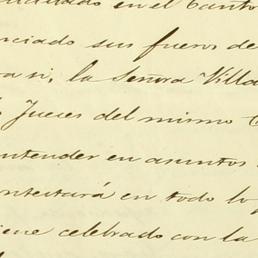 en el Canto
nciado sus fueros de
ra si, la Señora Villa
Jueces del mismo C
ntender en asuntos
ntestará en todo lo
iene celebrado con la